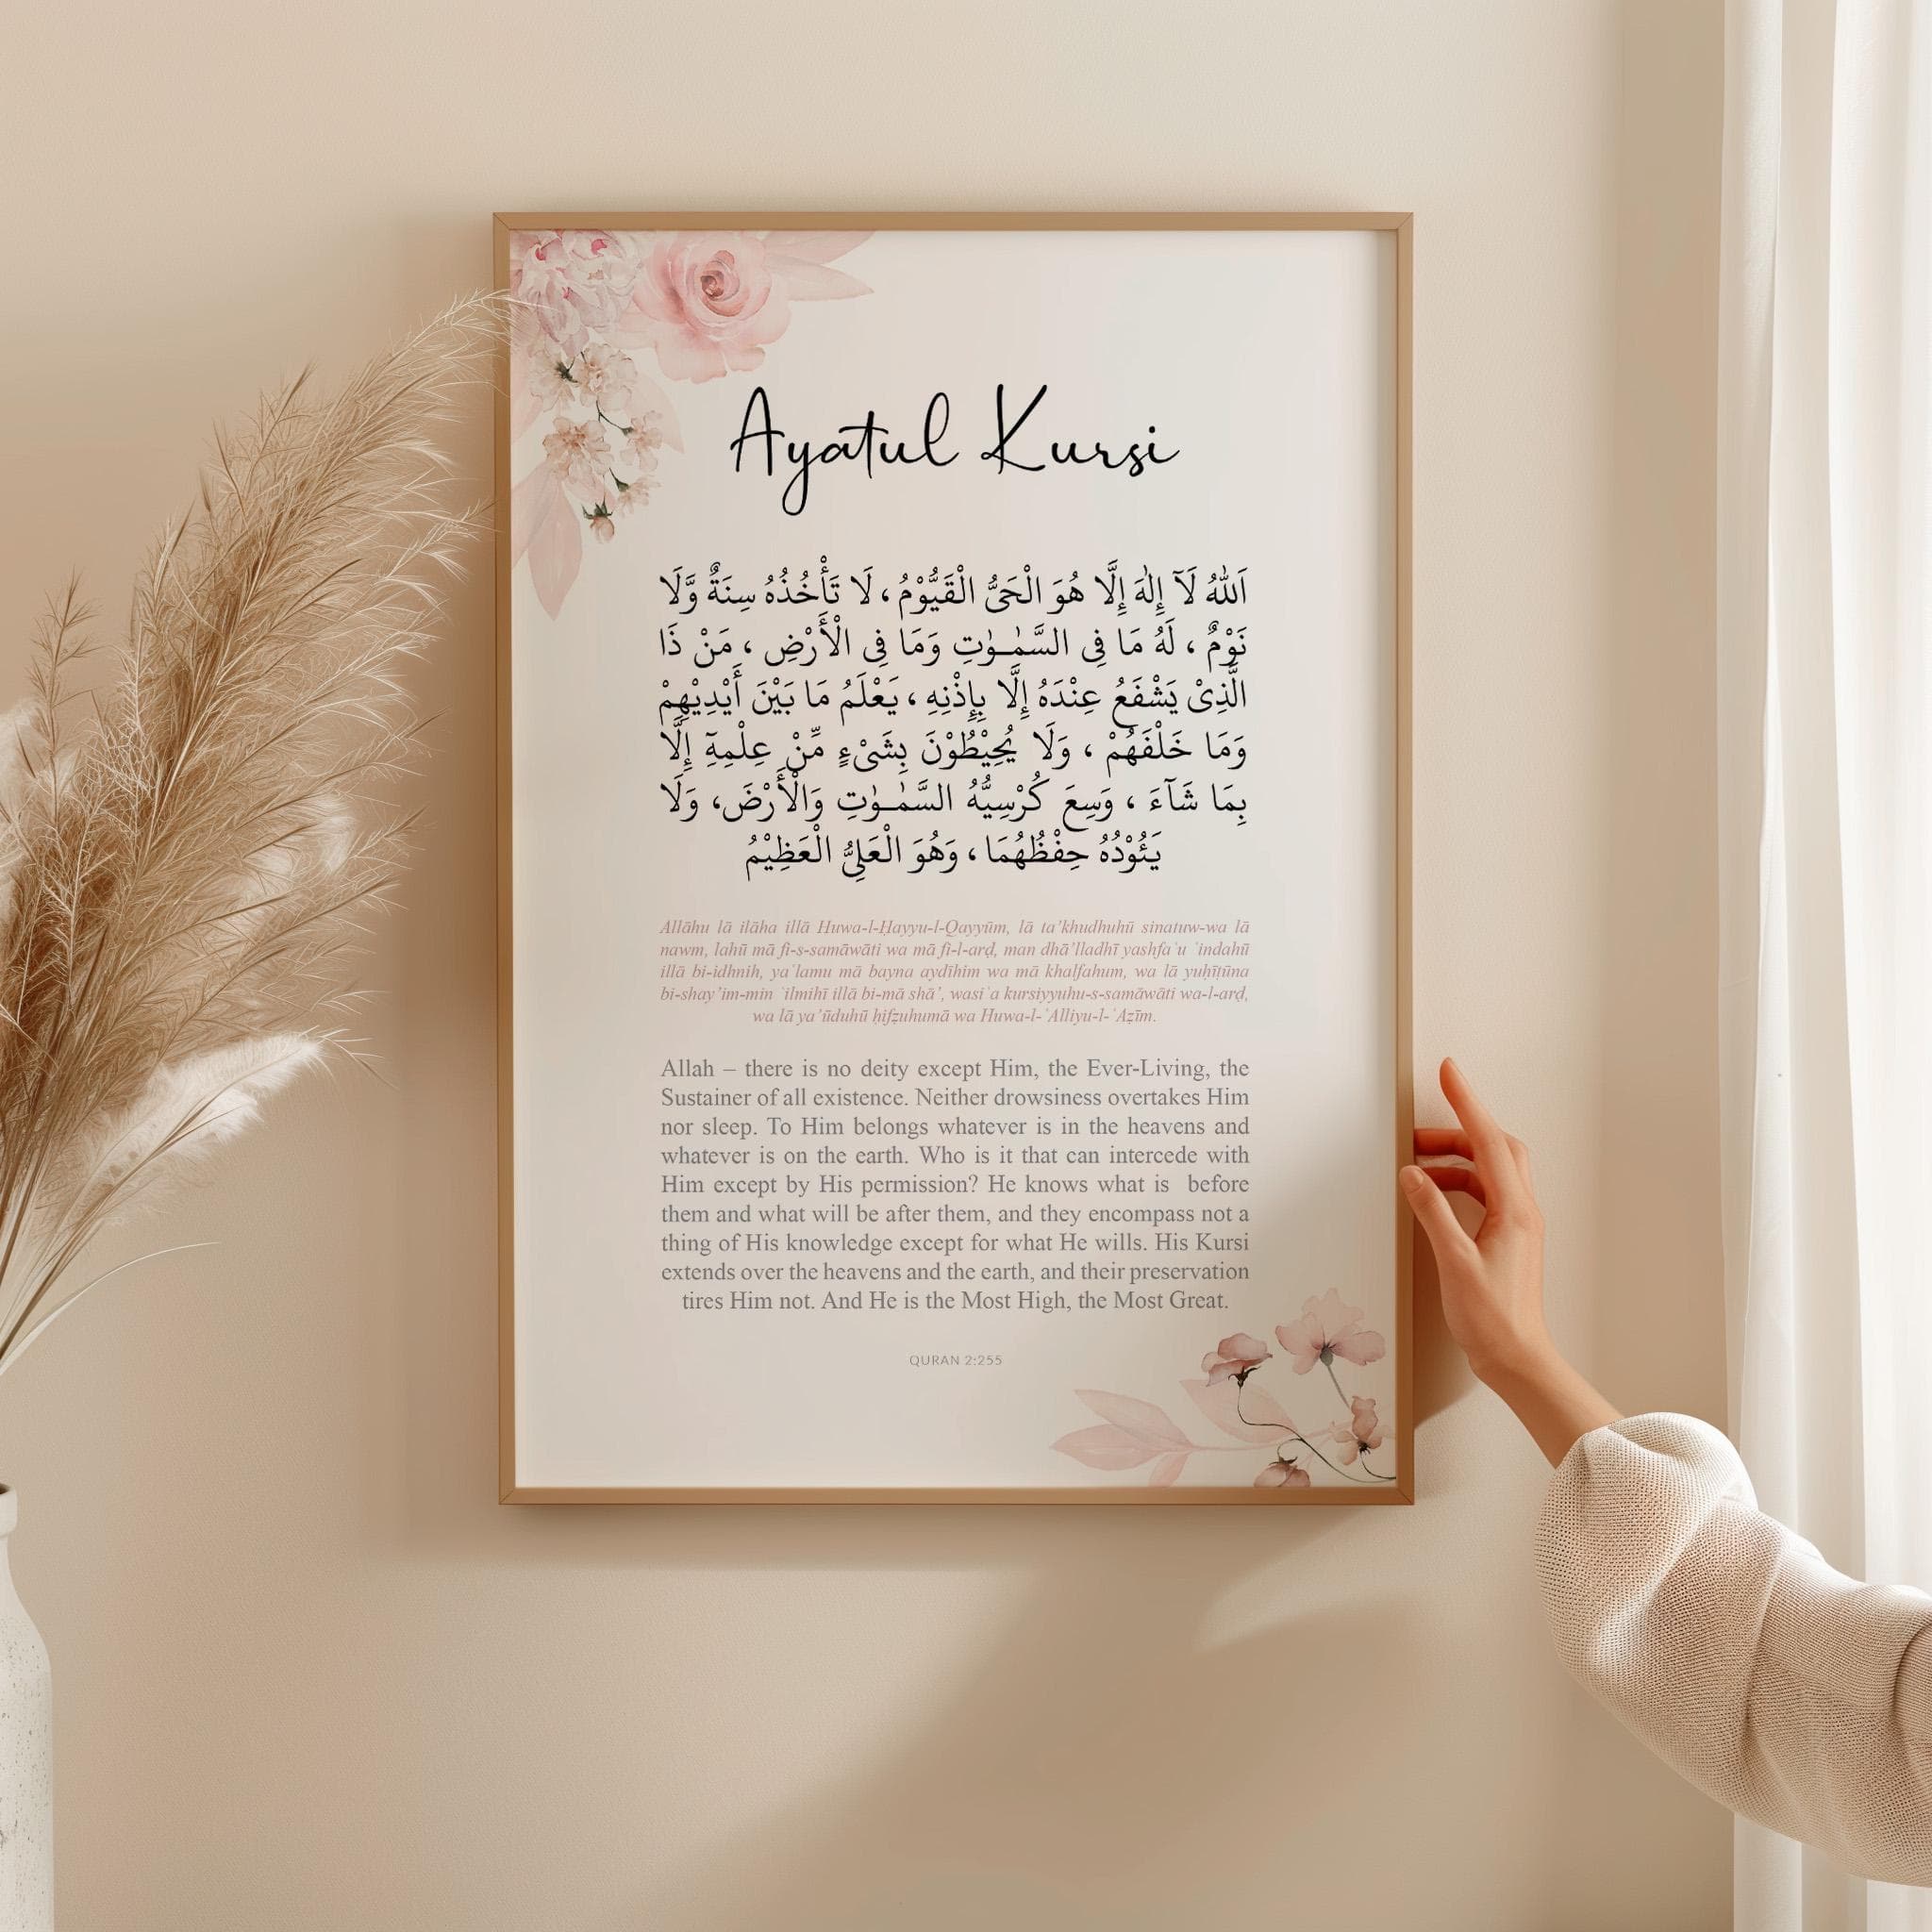 Ayatul Kursi
اَللّٰهُ لَآ إِلٰهَ إِلَّا هُوَ الْحَیُّ الْقَیُّوْمُ، لَا تَأْخُذُهُ سِنَةٌ وَّلَا
نَوْمٌ ، لَهُ مَا فِی السَّمٰـوٰتِ وَمَا فِی الْأَرْضِ ، مَنْ ذَا
الَّذِیْ یَشْفَعُ عِنْدَهُ إِلَّا بِإِذْنِهِ ، یَعْلَمُ مَا بَیْنَ أَیْدِیْهِمْ
وَمَا خَلْفَهُمْ ، وَلَا یُحِیْطُوْنَ بِشَیْءٍ مِّنْ عِلْمِهِٓ إِلَّا
بِمَا شَآءَ ، وَسِعَ كُرْسِیُّهُ السَّمٰـوٰتِ وَالْأَرْضَ، وَلَا
یَئُوْدُهُ حِفْظُهُمَا ، وَهُوَ الْعَلِیُّ الْعَظِیْمُ
Allāhu lā ilāha illā Huwa-l-Ḥayyu-l-Qayyūm, lā ta’khudhuhū sinatuw-wa lā
nawm, lahū mā fi-s-samāwāti wa mā fi-l-arḍ, man dhā’lladhī yashfaʿu ʿindahū
illā bi-idhnih, yaʿlamu mā bayna aydīhim wa mā khalfahum, wa lā yuḥīṭūna
bi-shay’im-min ʿilmihī illā bi-mā shā’, wasiʿa kursiyyuhu-s-samāwāti wa-l-arḍ,
wa lā ya’ūduhū ḥifẓuhumā wa Huwa-l-ʿAlliyu-l-ʿAẓīm.
Allah – there is no deity except Him, the Ever-Living, the
Sustainer of all existence. Neither drowsiness overtakes Him
nor sleep. To Him belongs whatever is in the heavens and
whatever is on the earth. Who is it that can intercede with
Him except by His permission? He knows what is before
them and what will be after them, and they encompass not a
thing of His knowledge except for what He wills. His Kursi
extends over the heavens and the earth, and their preservation
tires Him not. And He is the Most High, the Most Great.
QURAN 2:255